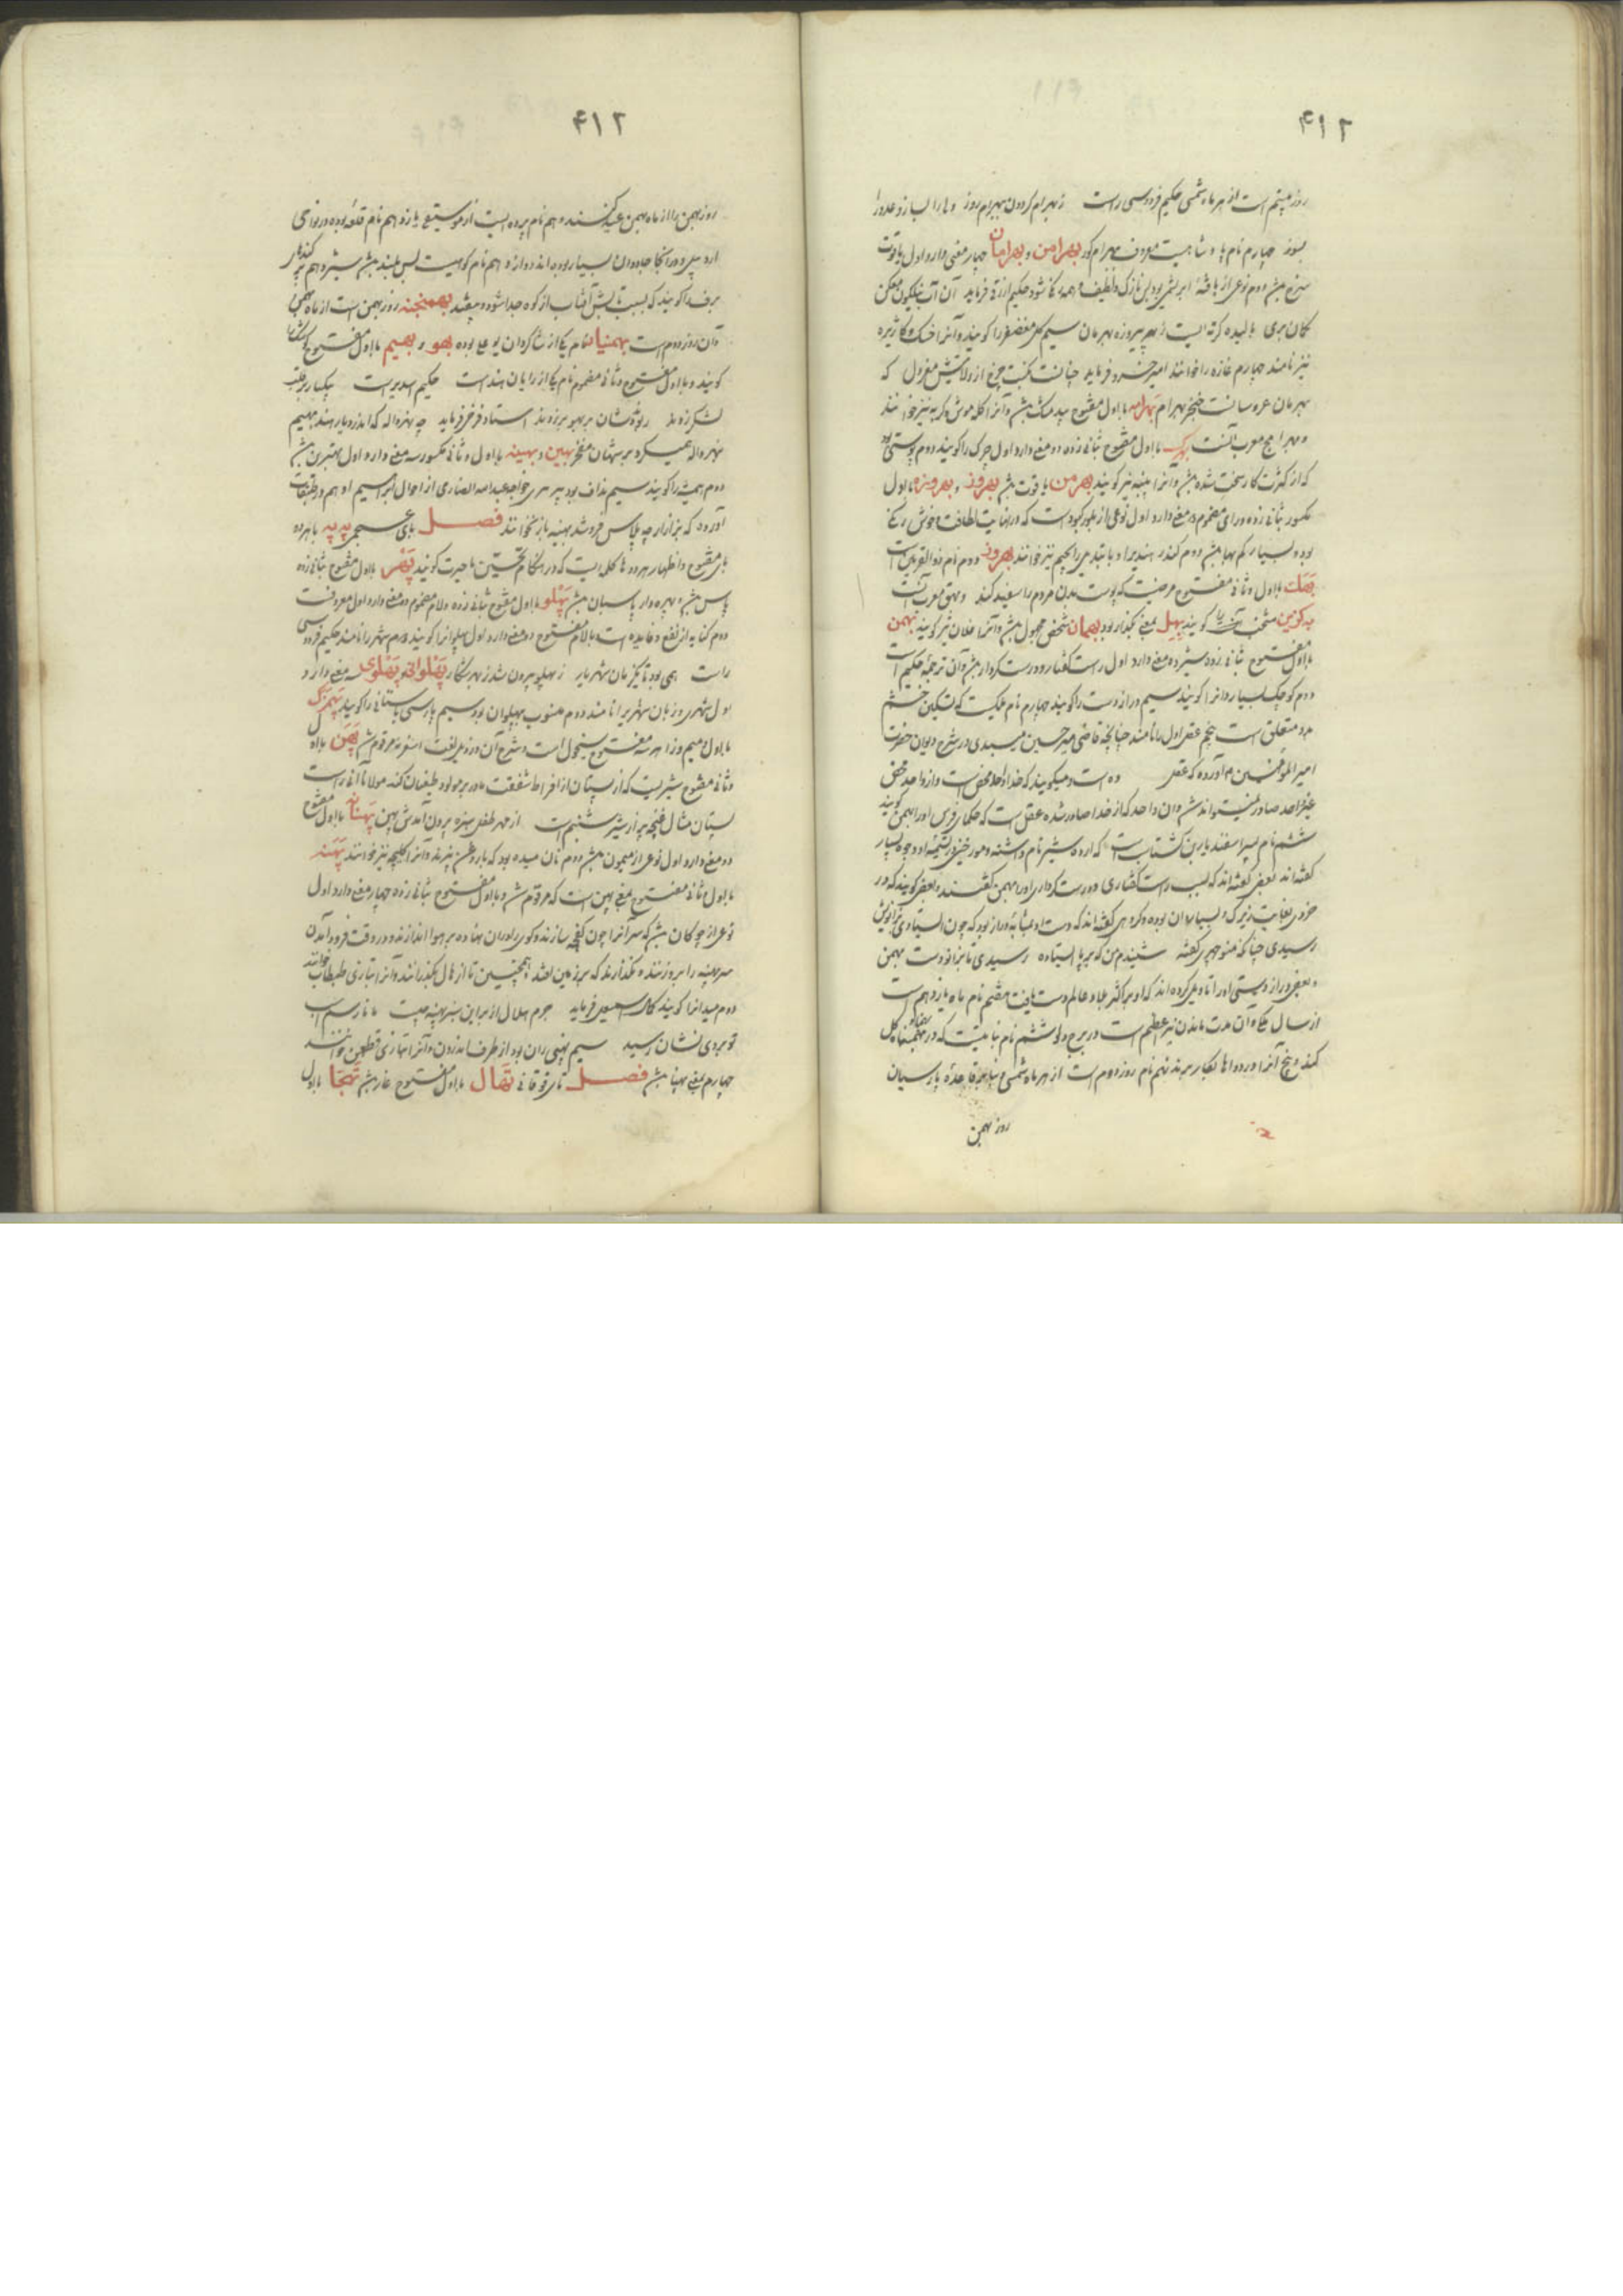 ۴۱۲
روز بیستم است از هر ماه شمسی حکیم فردوسی راست ز بهرام گردون ببهرام روز ولی را بساز و عدو را
بسوز چهارم نام پادشاهیست معروف ببهرام گور بهرامن و بهرامان چهار معنی دارد اول یاقوت
سرخ بش دوم نوعی از بافتهٔ ابریشمی بود بس نازک و لطیف حکیم ازرقی فرماید آن آب نیلگون
گمان بری بالیده کرته ایست ز بهر پیروزه بهرمان سیم گل معصفر را گویند و آنرا خسک و کاژیره
نیز نامند چهارم غازه را خوانند امیر خسرو فرماید که
بهرمان عروسانست خنجر بهرام بهرامه بااول مفتوح بیدمشک بش و آنرا گله موش و گربه نیز خوانند
و بهرامج معرب آنست بهرک بااول مفتوح بثانی زده دو معنی دارد اول چرک را گویند دوم پوستی بود
که از کثرت کار سخت شده بش و آنرا پینه نیز گویند بهرمن یاقوت بش بهروز و بهروزه بااول
مکسور بثانی زده و رای مضموم دو معنی دارد اول نوعی از بلور کبود است که در نهایت لطافت و خوش رنگی
بود و بسیار کم بها بش دوم کندر هندیرا و با تبدیل رای بجیم نیز خوانند بهروز دوم نام ذوالقرنین است
بهک بااول و ثانی مفتوح مرضیست که پوست بدن مردم را سفید کند و بهق معرب آنست
به گزین منتخب گویند بهل بمعنی بگذار بود بهمان شخص مجهول بش و آنرا فلان نیز گویند بهمن
بااول مفتوح بثانی زده سیزده معنی دارد اول راست گفتار و درست کردار بش و آن ترجمهٔ حکیم است
دوم کوچک بسیار دان را گویند سیم دراز دست را گویند چهارم نام ملکیست که تسکین خشم
بدو متعلق است پنجم عقل اول را نامند چنانچه قاضی میر حسین میبدی در شرح دیوان حضرت
امیرالمؤمنین م آورده که عقل ده است و میگویند که خدا واحد محض است و از واحد محض
غیر واحد صادر نمیتواند شد و آن واحد که از خدا صادر شده عقل است که حکمای فرس او را بهمن گویند
ششم نام پسر اسفندیار بن گشتاسب است که اردشیر نام داشته و مورخین در تسمیهٔ او وجوه بسیار
گفته اند بعضی گفته اند که بسبب راست گفتاری و درست کرداری او را بهمن گفتند و بعضی گویند که در
خردی بغایت زیرک و بسیار دان بوده و گروهی گفته اند که دست او بمثابه دراز بود که چون ایستادی بزانویش
رسیدی چنانکه منوچهری گفته شنیدم من که بر پا ایستاده رسیدی تا بزانو دست بهمن
و بعضی دراز دستی او را تاویل کرده اند که او بر اکثر بلاد عالم دست یافت هفتم نام ماه یازدهم است
از سال ملکی و آن مدت ماندن نیر اعظم است در برج دلو هشتم نام نباتیست که در بهمنماه گل
کند و بیخ آنرا در دواها بکار برند نهم نام روز دوم است از هر ماه شمسی و بنابر قاعدهٔ پارسیان
روز بهمن
۴۱۲
روز بهمن را از ماه بهمن عید کنند دهم نام پرده ایست از موسیقی یازدهم نام قلعه بوده در نواحی
اردبیل و در آنجا جادوان بسیار بوده اند دوازدهم نام کوهیست بس بلند بش سیزدهم
برف را گویند که بسبب تابش آفتاب از کوه جدا شود و بیفتد بهمنجنه روز بهمن است از ماه بهمن
و آن روز دوم است بهمنیار نام یکی از شاگردان بوعلی بوده بهو و بهیم بااول مفتوح
گویند و بااول مفتوح و ثانی مضموم نام یکی از رایان هند است حکیم اسدی راست یکبار بر قلب
لشکر زدند بر بهو برزدند استاد فرخی فرماید چه نهرواله که اندر دیار هند بهیم
نهرواله همیکرد بر شهان مفخر بهین و بهینه بااول و ثانی مکسور سه معنی دارد اول بهترین بش
دوم هفته را گویند سیم نداف بود پیر هری خواجه عبدالله انصاری از احوال ابراهیم ادهم در طبقات
آورده که بزازار چه پلاس فروشد بهینه باز نخوانند فصل بای عجمی په په با هر دو
بای مفتوح و اظهار هر دو ها کلمه ایست که در هنگام تحسین یا حیرت گویند پهر بااول مفتوح بثانی زده
پاس بش و پهره دار پاسبان بش پهلو بااول مفتوح بثانی زده و لام مضموم دو معنی دارد اول معروفست
دوم کنایه از نفع و فایده است با لام مفتوح دو معنی دارد اول پهلوانرا گویند دوم شهر را نامند حکیم فردوسی
راست همی بود تا یک زمان شهریار ز پهلو برون شد ز بهر شکار پهلوانی و پهلوی سه معنی دارد
اول شهری و زبان شهریرا نامند دوم منسوب بپهلوان بود سیم پارسی باستانی را گویند پهمزک
بااول و میم و زا هر سه مفتوح سیخول است و شرح آن در ذیل لغت اسغر مرقوم شد پهن بااول
و ثانی مفتوح شیریست که از پستان از افراط شفقت مادر بر مولود طغیان کند مولانا آنی راست
پستان مثال غنچه پر از شیر شبنم است از مهر طفل سبزه برون آمدش پهن پهنانه بااول مفتوح
دو معنی دارد اول نوعی از میمون بش دوم نان میده بود که با روغن پزند و آنرا کلیچه نیز خوانند پهنه
بااول و ثانی مفتوح بمعنی پهن است که مرقوم شد و بااول مفتوح بثانی زده چهار معنی دارد اول
نوعی از چوگان بش که سر آنرا چون کفچه سازند و گوی را در آن نهاده بر هوا اندازند و در وقت فرود آمدن
سر پهنه را بر او زنند و نگذارند که بر زمین افتد همچنین تا از هال بگذرانند و آنرا بتازی طبطاب خوانند
دوم میدانرا گویند کمال اسمعیل فرماید جرم هلال از بر این سبز پهنه چیست مانا رسم اسب
تو بر وی نشان رسید سیم پهنی ران بود از طرف اندرون و آنرا بتازی قطن خوانند
چهارم بمعنی پهنا بش فصل تای فوقانی تهال بااول مفتوح غار بش تهجا بااول